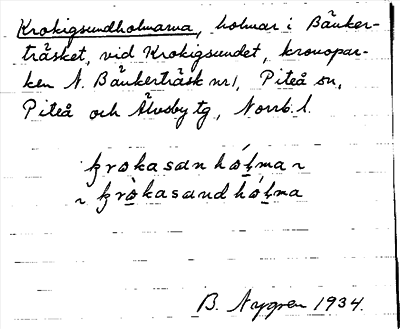 Krokigsundholmarna, holmar i Bänker-
träsket, vid Krokigsundet, kronopar-
ken N. Bänkerträsk nr 1, Piteå sn,
Piteå och Älvsby tg, Norrb. l.
krokasan hólma ~
~ kròkasund hólma
B. Nygren 1934.